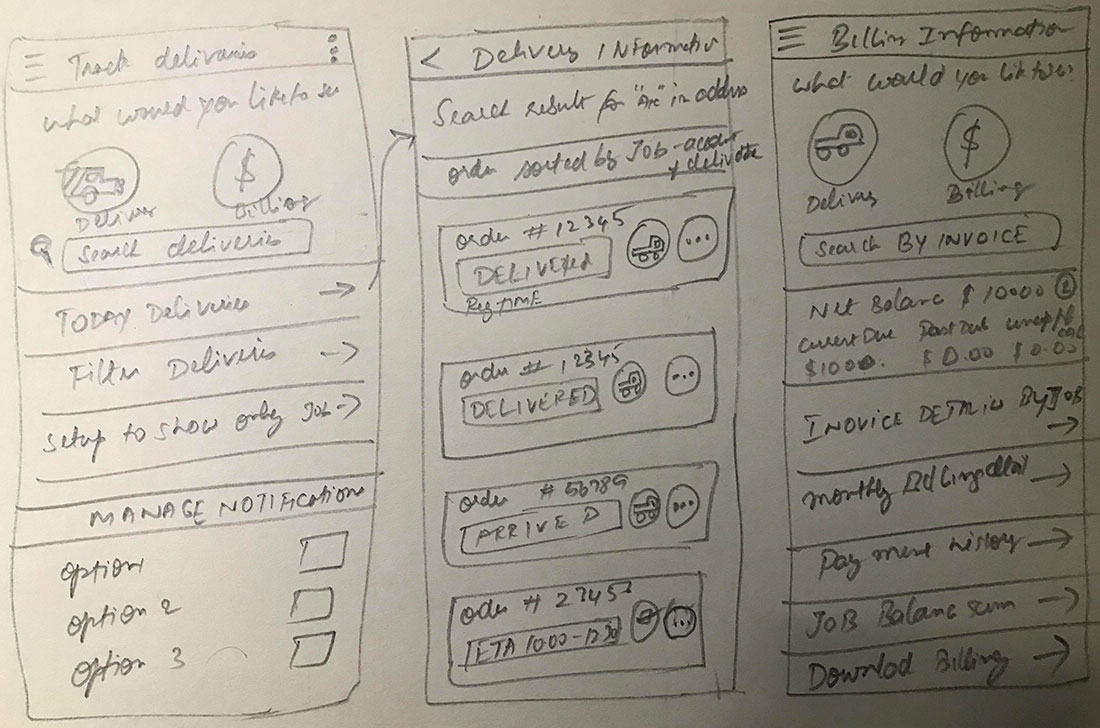 Track deliveris
what would you like to se
Deliver
Billing
Search deliveris
TODAY Deliveries
Filter Deliveris
Setup to show only Job
MANAGE NOTIFICATIONS
option
option 2
option 3
Delivery INformation
Search result for "Arc" in address
order sorted by Job-account
& delivdate
order # 12345
DELIVERed
Req TIME
order # 12345
DELIVERED
order # 56789
ARRIVE D
order # 23453
ETA 1000-1230
Billing Information
what would you like to se
Delivey
Billing
Search BY INVOICE
Net Balanc $ 10000
current Due Past Due
$1000. $ 0.00 $ 0.00
INOVICE DETAILS BY JOB
monthly Billing
Payment history
JOB Balanc sum
Downlod Billing